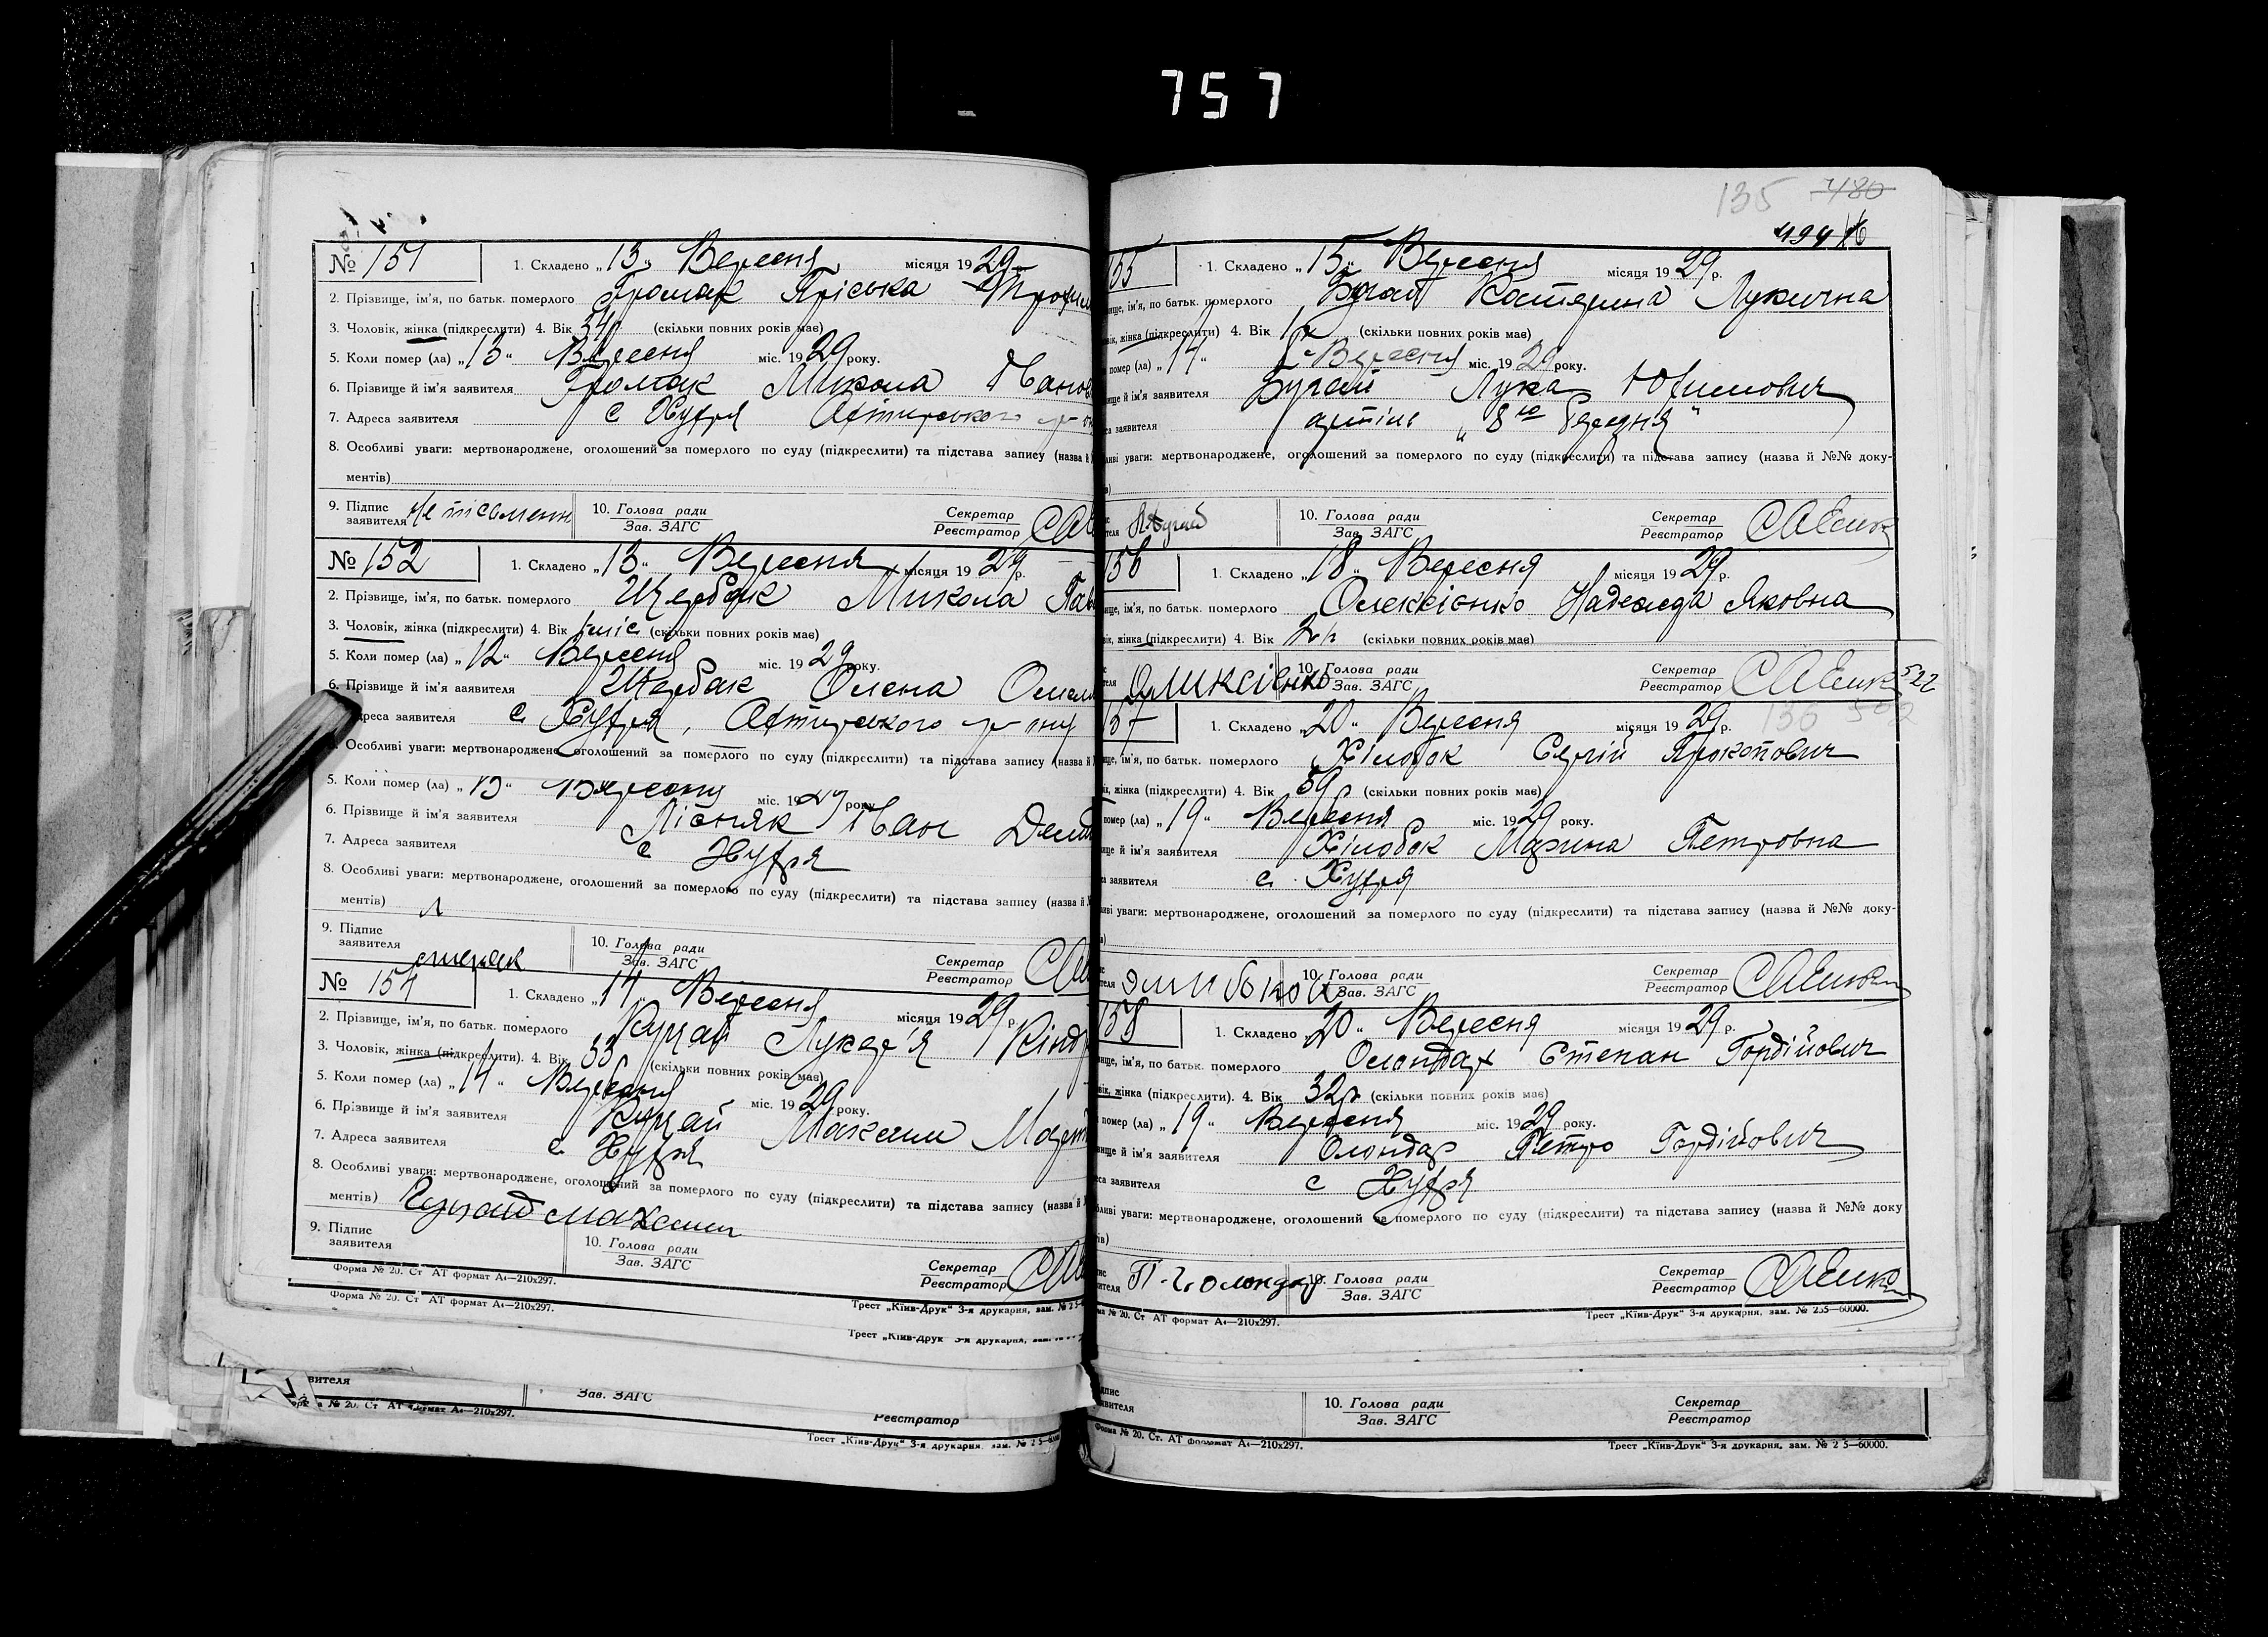 757
№ 151 1. Складено „13“ Вересня місяця 1929 р.
2. Прізвище, ім'я, по батьк. померлого Громак Пріська
3. Чоловік, жінка (підкреслити) 4. Вік 34 р (скільки повних років має)
5. Коли помер (ла) „13“ Вересня міс. 1929 року.
6. Прізвище й ім'я заявителя Громак Микола Іванов
7. Адреса заявителя с Хухря Охтирського р-ну
8. Особливі уваги: мертвонароджене, оголошений за померлого по суду (підкреслити) та підстава запису (назва й
ментів)
9. Підпис заявителя Не письменн 10. Голова ради Зав. ЗАГС Секретар Реєстратор
№ 152 1. Складено „13“ Вересня місяця 1929 р.
2. Прізвище, ім'я, по батьк. померлого Щербак Микола
3. Чоловік, жінка (підкреслити) 4. Вік міс (скільки повних років має)
5. Коли помер (ла) „12“ Вересня міс. 1929 року.
6. Прізвище й ім'я заявителя Щербак Олена
адреса заявителя с Хухря, Охтирського р-ну
Особливі уваги: мертвонароджене, оголошений за померлого по суду (підкреслити) та підстава запису (назва й
5. Коли помер (ла) „13“ Вересня міс. 1929 року.
6. Прізвище й ім'я заявителя Лісняк Іван
7. Адреса заявителя с Хухря
8. Особливі уваги: мертвонароджене, оголошений за померлого по суду (підкреслити) та підстава запису (назва й
ментів)
9. Підпис заявителя 10. Голова ради Зав. ЗАГС Секретар Реєстратор
№ 154 1. Складено „14“ Вересня місяця 1929 р.
2. Прізвище, ім'я, по батьк. померлого Лукер'я
3. Чоловік, жінка (підкреслити). 4. Вік 33 р (скільки повних років має)
5. Коли помер (ла) „14“ Вересня міс. 1929 року.
6. Прізвище й ім'я заявителя Максим
7. Адреса заявителя с Хухря
8. Особливі уваги: мертвонароджене, оголошений за померлого по суду (підкреслити) та підстава запису (назва й
ментів)
9. Підпис заявителя 10. Голова ради Зав. ЗАГС Секретар Реєстратор
Форма № 20. Ст АТ формат А4—210х297.
Форма № 20. Ст АТ формат А4—210х297. Трест „Київ-Друк“ 3-я друкарня, зам. №
Трест „Київ-Друк“ 3-я друкарня,
вителя Зав. ЗАГС Реєстратор
№ 20. Ст АТ формат А4—210х297. Трест „Київ-Друк“ 3-я друкарня, зам. №
135 480
494
155 1. Складено „15“ Вересня місяця 1929 р.
ім'я, по батьк. померлого Катерина Лукична
жінка (підкреслити) 4. Вік 1 р (скільки повних років має)
помер (ла) „14“ Вересня міс. 1929 року.
й ім'я заявителя Бугай Лука Юхимович
заявителя артіль „8го Березня“
уваги: мертвонароджене, оголошений за померлого по суду (підкреслити) та підстава запису (назва й №№ доку-
10. Голова ради Зав. ЗАГС Секретар Реєстратор
156 1. Складено „18“ Вересня місяця 1929 р.
ім'я, по батьк. померлого Олексієнко Надежда Яковна
жінка (підкреслити) 4. Вік 2 р (скільки повних років має)
Оликсієнко 10. Голова ради Зав. ЗАГС Секретар Реєстратор 522
157 1. Складено „20“ Вересня місяця 1929 р. 136
ім'я, по батьк. померлого Хілобок Сергій Прокопович
жінка (підкреслити) 4. Вік 59 р (скільки повних років має)
помер (ла) „19“ Вересня міс. 1929 року.
й ім'я заявителя Хілобок Марина Петровна
заявителя с. Хухря
уваги: мертвонароджене, оголошений за померлого по суду (підкреслити) та підстава запису (назва й №№ доку-
10. Голова ради Зав. ЗАГС Секретар Реєстратор
158 1. Складено „20“ Вересня місяця 1929 р.
ім'я, по батьк. померлого Олондар Степан Гордійович
жінка (підкреслити). 4. Вік 32 р (скільки повних років має)
помер (ла) „19“ Вересня міс. 1929 року.
й ім'я заявителя Олондар Петро Гордійович
заявителя с Хухря
уваги: мертвонароджене, оголошений за померлого по суду (підкреслити) та підстава запису (назва й №№ доку
10. Голова ради Зав. ЗАГС Секретар Реєстратор
№ 20. Ст АТ формат А4—210х297. Трест „Київ-Друк“ 3-я друкарня, зам. № 235—60000.
10. Голова ради Зав. ЗАГС Секретар Реєстратор
Форма № 20. Ст. АТ формат А4—210х297. Трест „Київ-Друк“ 3-я друкарня, зам. № 2 5—60000.